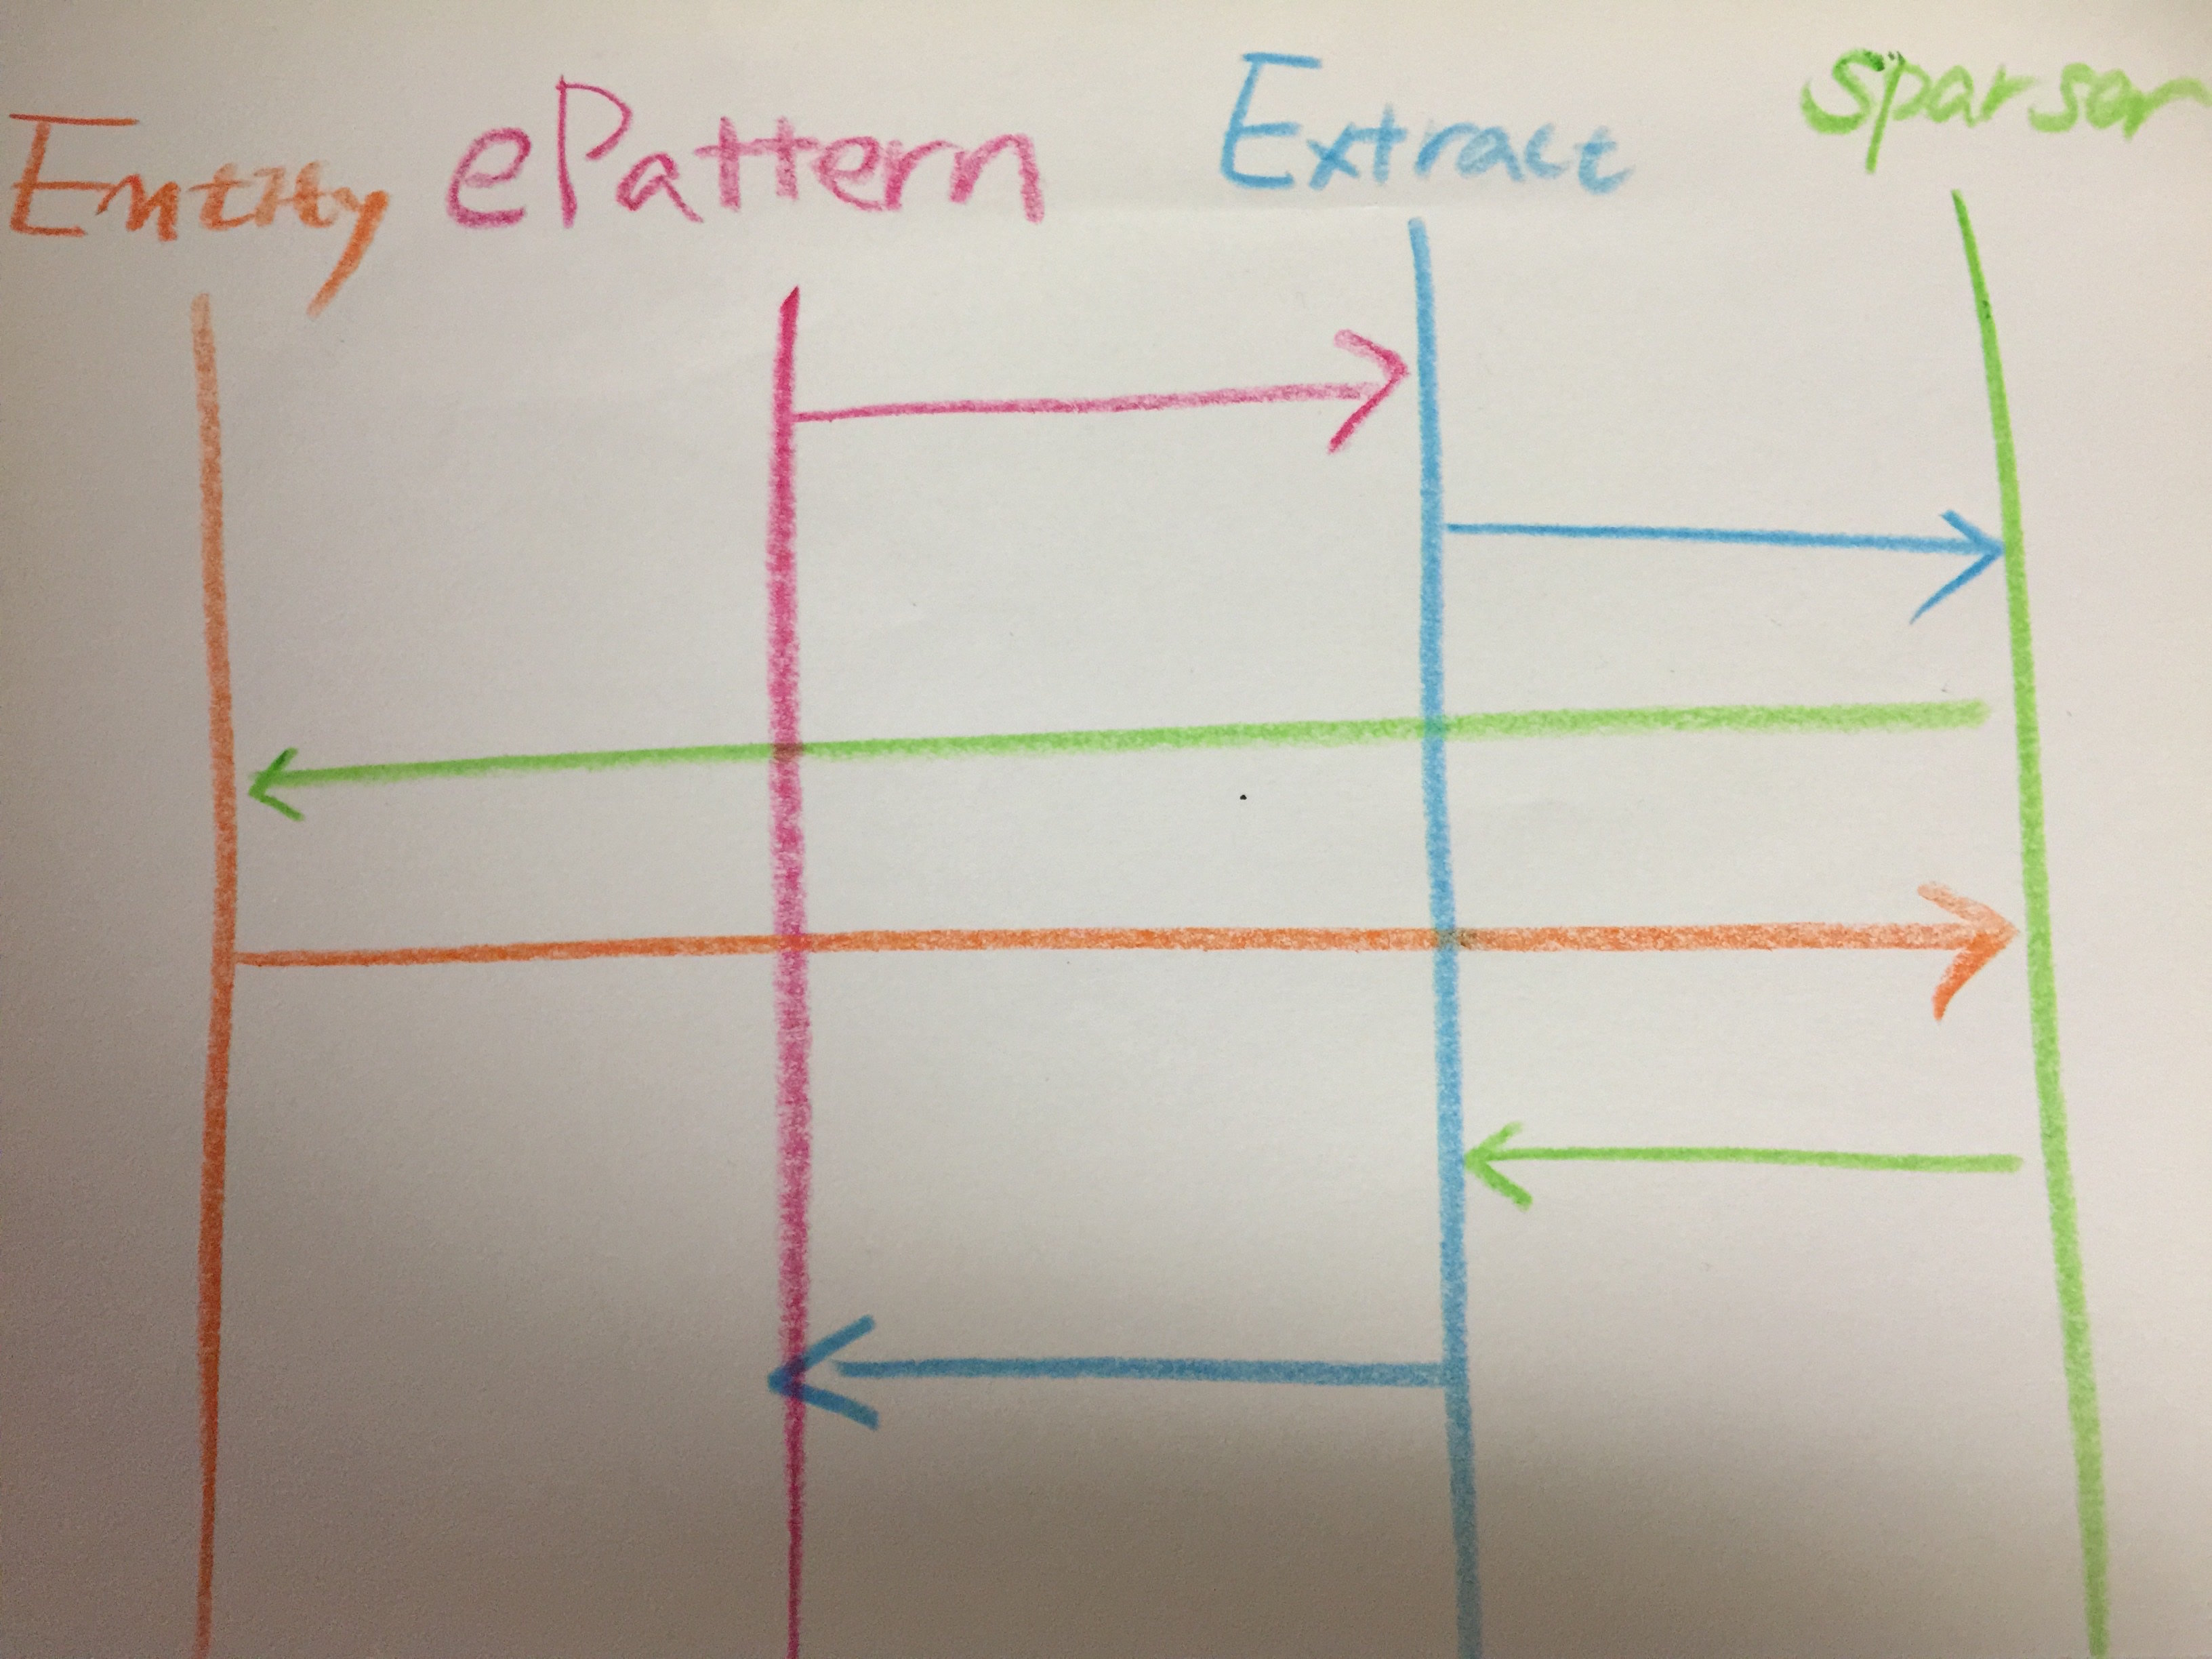 Entity ePattern Extract Sparser